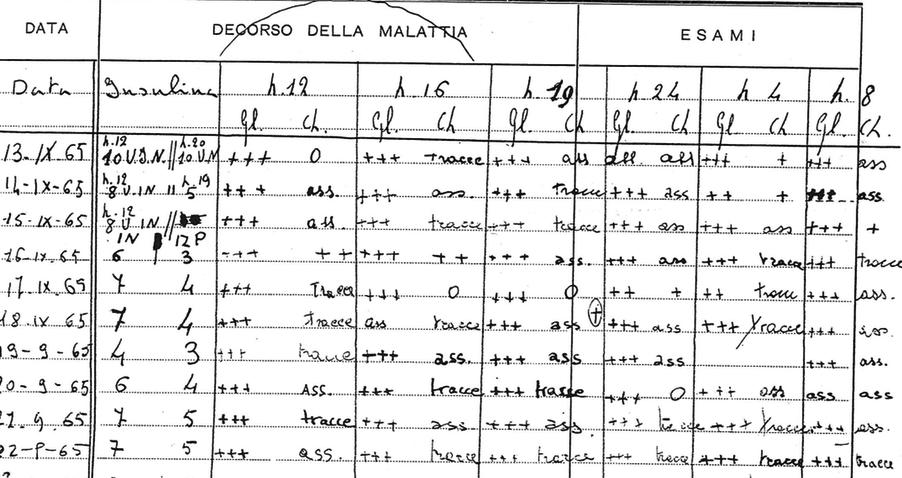 DATA DECORSO DELLA MALATTIA ESAMI
Data Insulina h.12 h.16 h.19 h 24 h 4 h. 8
Gl. Ch. Gl. Ch Gl. Ch Gl. Ch Gl Ch Gl. Ch.
h.12 h.20
13-IX.65 10 U.I.N. // 10 U.N +++ 0 +++ tracce +++ ass ass ass +++ + +++ ass
h.12 h 19
14-IX-65 8 U.IN 11 5 +++ ass. +++ ass. +++ tracce +++ ass ++ + +++ ass
h.12
15-IX-65 8 U.IN // +++ ass. +++ tracce +++ tracce +++ ass +++ ass +++ +
IN 12P
16-IX.65 6 3 +++ ++ +++ ++ +++ ass. +++ ass +++ tracce +++ tracce
17.IX.69 7 4 +++ Tracce +++ 0 +++ 0 ++ + ++ tracce +++ ass.
18.IX 65 7 4 +++ tracce ass tracce +++ ass + +++ ass +++ tracce +++ ass.
19-9-65 4 3 +++ tracce +++ ass. +++ ass +++ ass +++ ass.
20-9-65 6 4 +++ ASS. +++ tracce +++ tracce +++ 0 +++ ass ass ass
21.9.65 7 5 +++ tracce +++ ass +++ ass. +++ tracce +++ tracce +++ ass.
22-9-65 7 5 +++ ass. +++ tracce +++ tracce +++ tracce +++ tracce +++ tracce